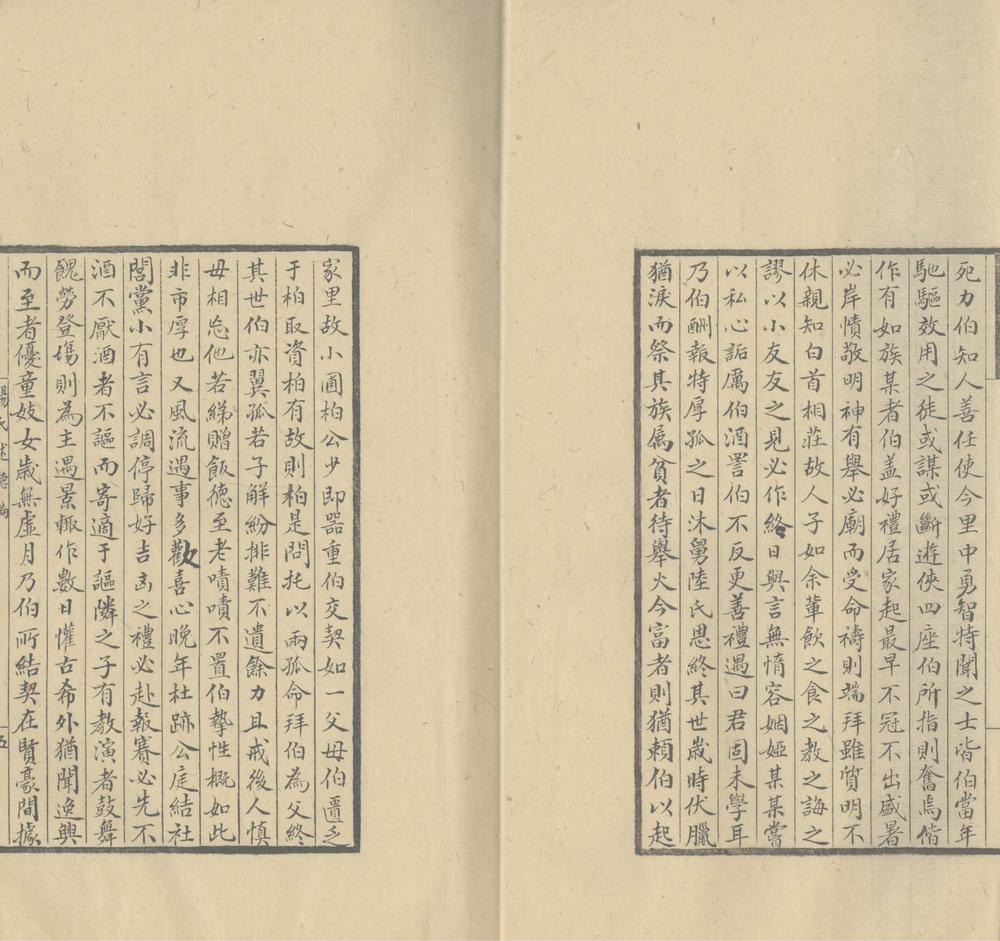 死力伯知人善任使今里中勇智特聞之士皆伯當年
馳驅效用之徒或謀或斷遊俠四座伯所指則奮焉偕
作有如族某者伯盖好禮居家起最早不冠不出盛暑
必岸幘敬明神有舉必廟而受命禱則端拜雖質明不
休親知白首相莊故人子如余輩飲之食之教之誨之
謬以小友友之見必作終日與言無惰容姻婭某某嘗
以私心詬厲伯酒詈伯不反更善禮遇曰君固未學耳
乃伯酬報特厚孤之日沐舅陸氏恩終其世歲時伏臘
猶淚而祭其族属貧者待舉火今富者則猶頼伯以起
家里故小圃柏公少即器重伯交契如一父母伯匱乏
于柏取資柏有故則柏是問托以兩孤命拜伯為父終
其世伯亦翼孤若子解紛排難不遺餘力且戒後人慎
毋相忘他若綈贈飯德至老嘖嘖不置伯摯性概如此
非市厚也又風流遇事多歡喜心晚年杜跡公庭結社
閭黨小有言必調停歸好吉凶之禮必赴報賽必先不
酒不厭酒者不謳而寄適于謳隣之子有教演者鼓舞
餽勞登塲則為主遇景輒作數日懽古希外猶聞逸興
而至者優童妓女歲無虛月乃伯所結契在賢豪間據
楊氏述德編
五